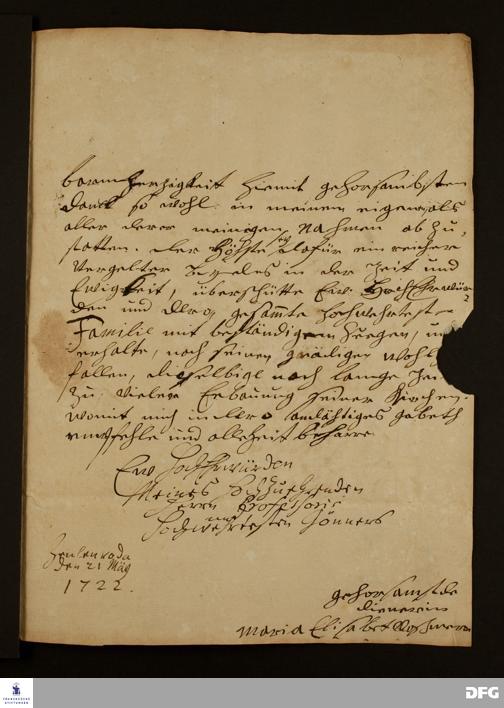 barmherzigkeit hiermit gehorsambsten
Danck so wohl in meinen eigen als
aller derer meinigen Nahmen ab zu
statten. der Höchste sey dafür ein reicher
Vergelter in der Zeit und
Ewigkeit, überschütte Ew: Hoch Ehrwür
den und Dero gesamte hochwehrteste
Familie mit beständigem Seegen, und
erhalte, nach seinen gnädigen wohl
fallen, dieselbige noch lange Zeit
zu vieler Erbauung seiner Kirchen.
womit mich in Dero andächtiges gebeth
empfehle und allezeit beharre
Ew Hochehrwürden
Meines Hochzuehrenden
Herrn Professoris
und
Hochwehrtesten Gönners
Zeulenroda
den 21 May
1722.
gehorsamste
dienerin
Maria Elisabet
FRANCKESCHE
STIFTUNGEN
DFG